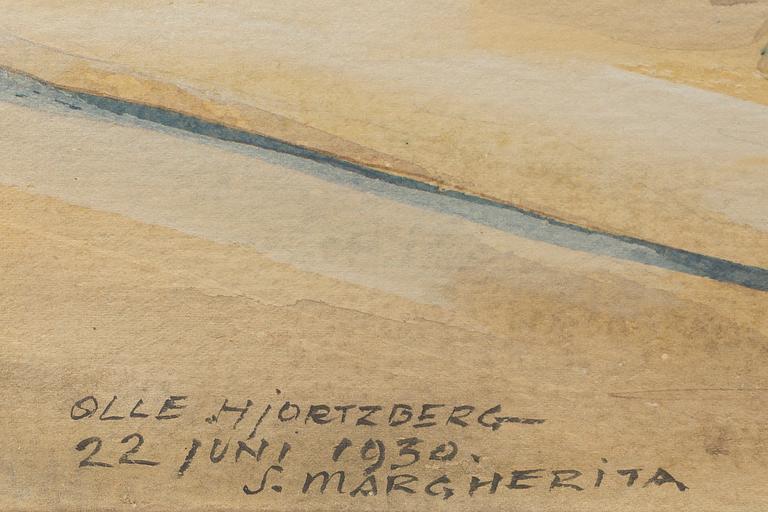 OLLE HJORTZBERG
22 JUNI 1930.
S. MARGHERITA